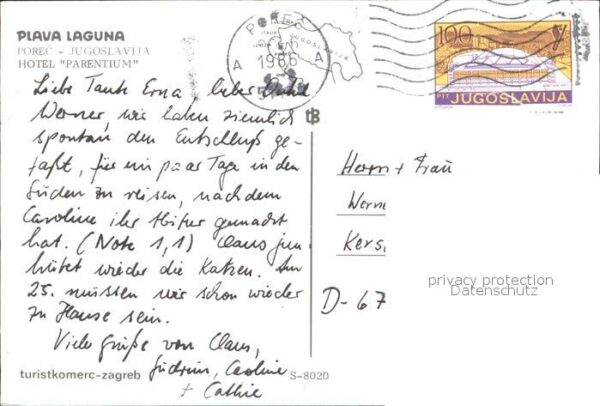 PLAVA LAGUNA
POREČ - JUGOSLAVIJA
HOTEL "PARENTIUM"
POREČ
1986
A A
JUGOSLAVIJA
100
PTT JUGOSLAVIJA
Liebe Tante Erna, lieber Onkel
Werner, wir haben ziemlich
spontan den Entschluß ge-
faßt, für ein paar Tage in den
Süden zu reisen, nachdem
Caroline ihr Abitur gemacht
hat. (Note 1,1) Claus jun.
hütet wieder die Katzen. Am
25. müssen wir schon wieder
zu Hause sein.
Viele Grüße von Claus,
Gudrun, Caroline
+ Cathie
Herrn + Frau
Werne
Kers
D-67
privacy protection
Datenschutz
turistkomerc-zagreb
S-8020